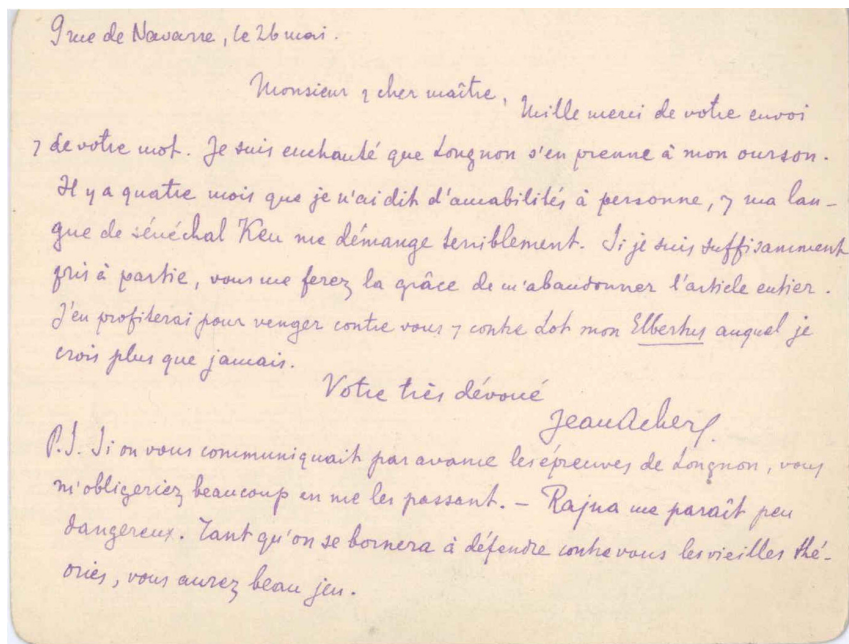 9 rue de Navarre, le 26 mai.
Monsieur 7 cher maître,
Mille merci de votre envoi
7 de votre mot. Je suis enchanté que Longnon s'en prenne à mon ourson.
Il y a quatre mois que je n'ai dit d'amabilités à personne, 7 ma lan-
gue de sénéchal Keu me démange terriblement. Si je suis suffisamment
pris à partie, vous me ferez la grâce de m'abandonner l'article entier.
J'en profiterai pour venger contre vous 7 contre Lot mon Elbertus auquel je
crois plus que jamais.
Votre très dévoué
Jean Acher.
P.S. Si on vous communiquait par avance les épreuves de Longnon, vous
m'obligeriez beaucoup en me les passant. – Rajna me paraît peu
dangereux. Tant qu'on se bornera à défendre contre vous les vieilles thé-
ories, vous aurez beau jeu.